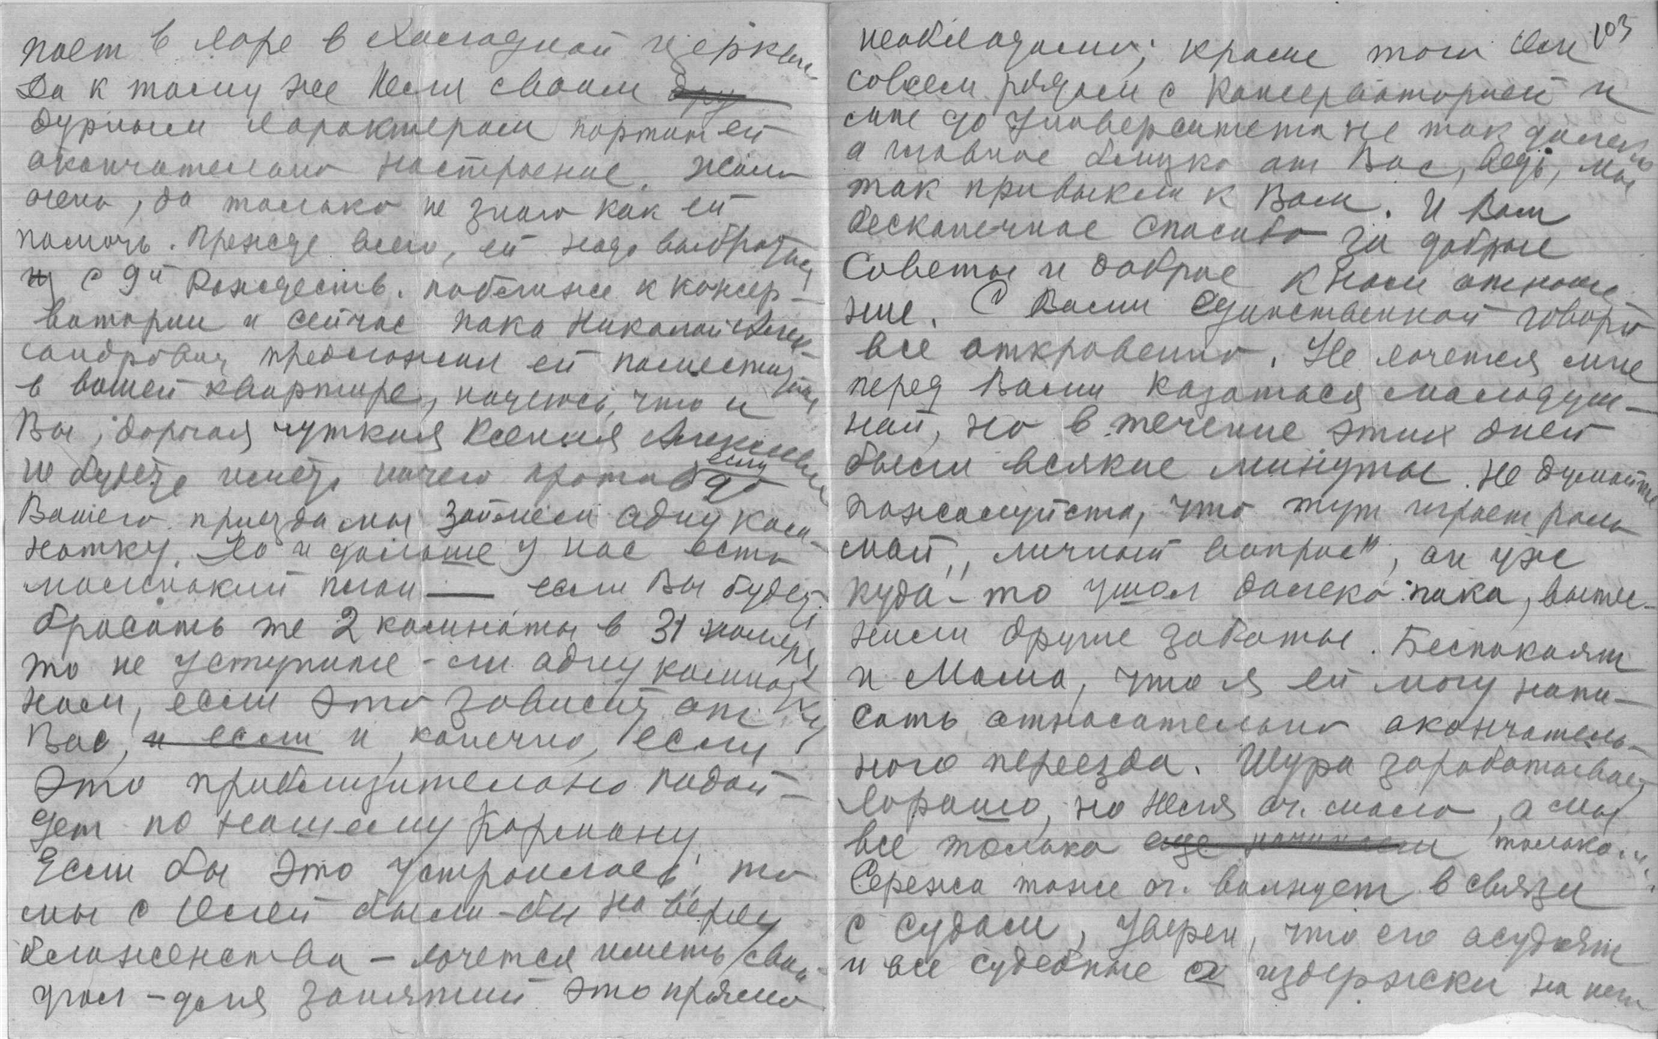 поет в хоре в холодной церкви
Да к тому же Неля своим дру
дурным характером портит ей
окончательно настроение. Жаль
очень, да только не знаю как ей
помочь. Прежде всего, ей надо выбраться
с 9й Рождеств. поближе к консер-
ватории и сейчас пока Николай Алек-
сандрович предложил ей поместиться
в вашей квартире, надеюсь, что и
Вы, дорогая чуткая Ксения Алексеевна
не будете иметь ничего против если до
Вашего приезда мы займем одну ком-
натку. Но и дальше у нас есть
маленький план — если Вы будете
бросать же 2 комнаты в 31 номере,
то не уступите-ли одну комнатку
нам, если это зависит от
Вас, и если и, конечно, если
это приблизительно подой-
дет по нашему карману.
Если бы это устроилось, то
мы с Олей были-бы на верху
блаженства – хочется иметь свой
угол – для занятий это прямо
103
необходимо; кроме того Оле
совсем рядом с Консерваторией и
мне до Университета не так далеко
а главное близко от Вас, ведь, мы
так привыкли к Вам. И Вам
бесконечное спасибо за добрые
советы и доброе к нам отноше-
ние. С Вами единственной говорю
все откровенно. Не хочется мне
перед Вами казаться малодуш-
ной, но в течение этих дней
были всякие минуты. Не думайте
пожалуйста, что тут играет роль
мой „личный вопрос", он уже
куда-то ушол далеко пока, вытес-
нили другие заботы. Беспокоит
и Мама, что я ей могу напи-
сать относительно окончатель-
ного переезда. Шура зарабатывает
хорошо, но Неля оч. мало, а мы
все только еще начинаем только...
Сережа тоже оч. волнует в связи
с судом, уверен, что его осудят
и все судебные издержки на нем